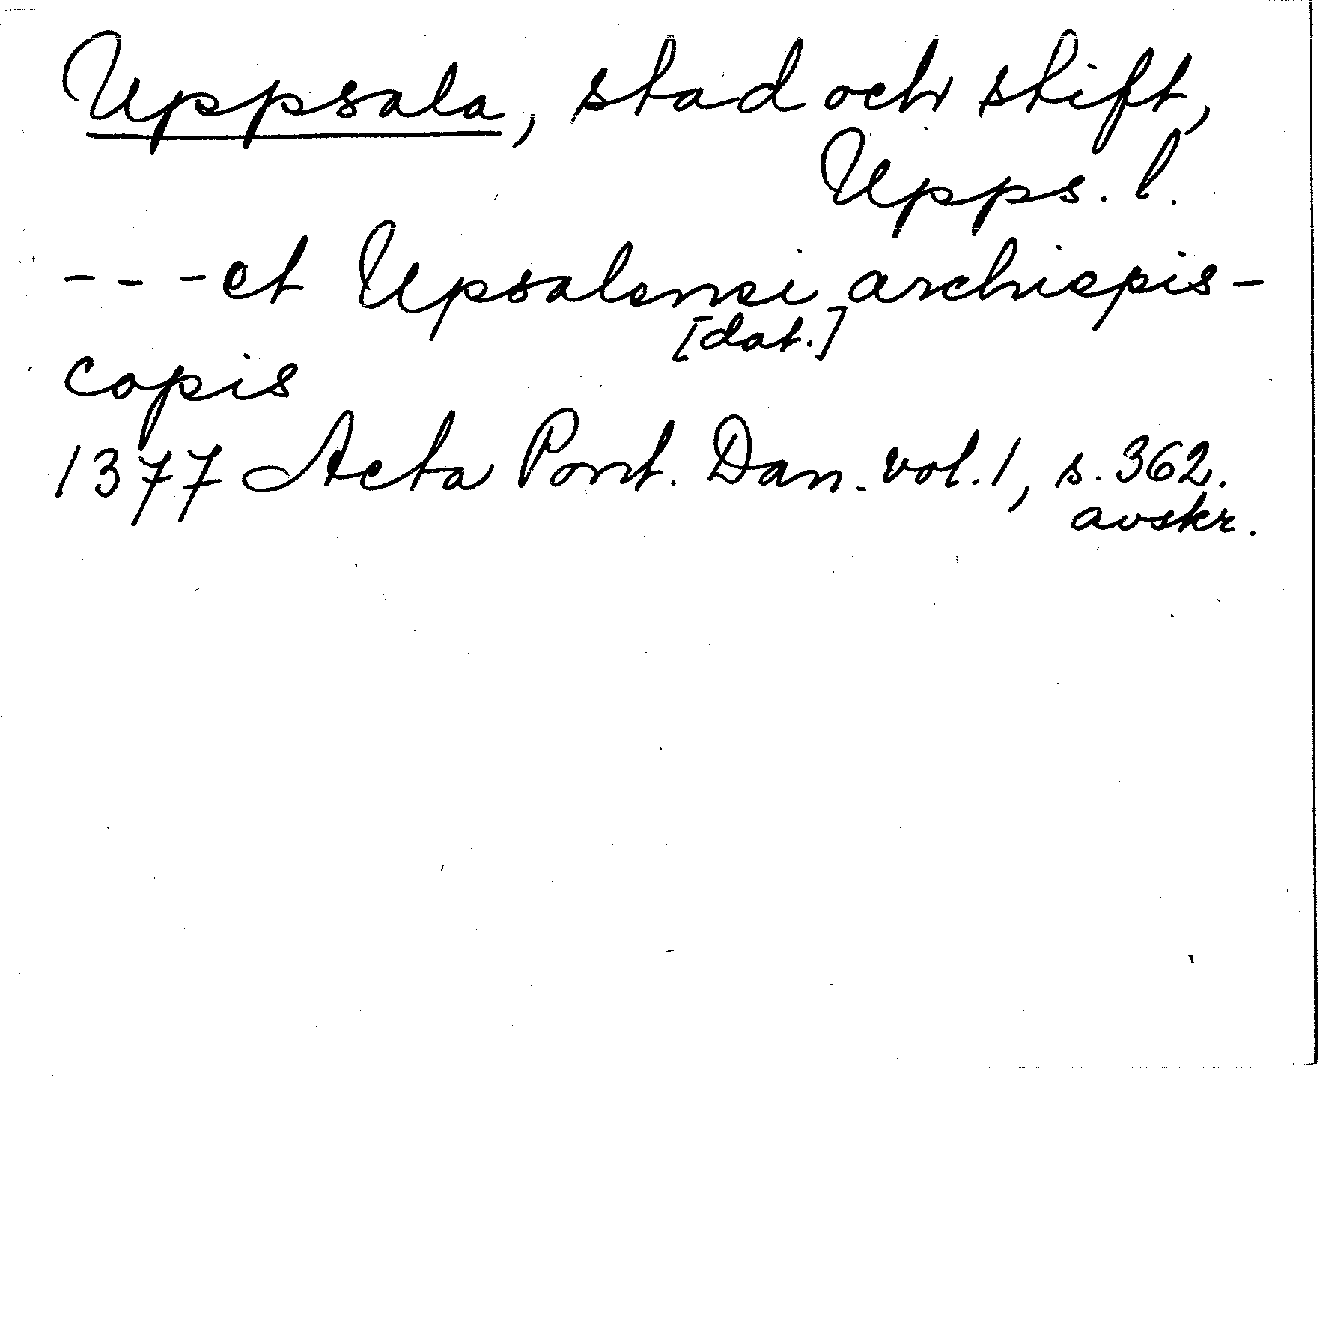 Uppsala, stad och stift,
Upps. l.
- - - et Upsalensi archiepis-
[dat.]
copis
1377 Acta Pont. Dan. vol. 1, s. 362.
avskr.